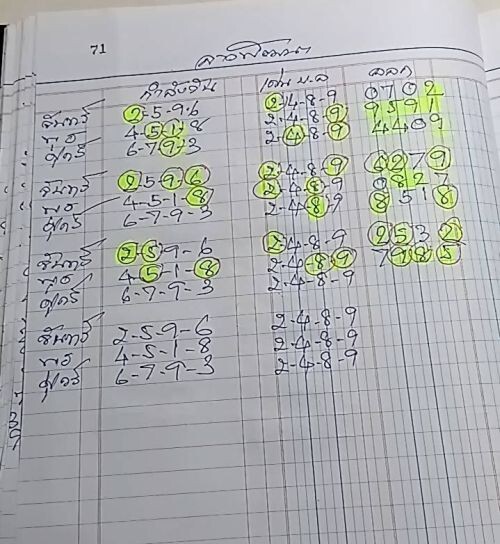 71
ลาวพัฒนา
กำลังวัน เด่น บ.ล ออก
จันทร์ 2-5-9-6 2-4-8-9 0702
พุธ 4-5-1-8 2-4-8-9 9591
ศุกร์ 6-7-9-3 2-4-8-9 4409
จันทร์ 2-5-9-6 2-4-8-9 6279
พุธ 4-5-1-8 2-4-8-9 0827
ศุกร์ 6-7-9-3 2-4-8-9 8518
จันทร์ 2-5-9-6 2-4-8-9 2532
พุธ 4-5-1-8 2-4-8-9 7985
ศุกร์ 6-7-9-3 2-4-8-9
จันทร์ 2-5-9-6 2-4-8-9
พุธ 4-5-1-8 2-4-8-9
ศุกร์ 6-7-9-3 2-4-8-9